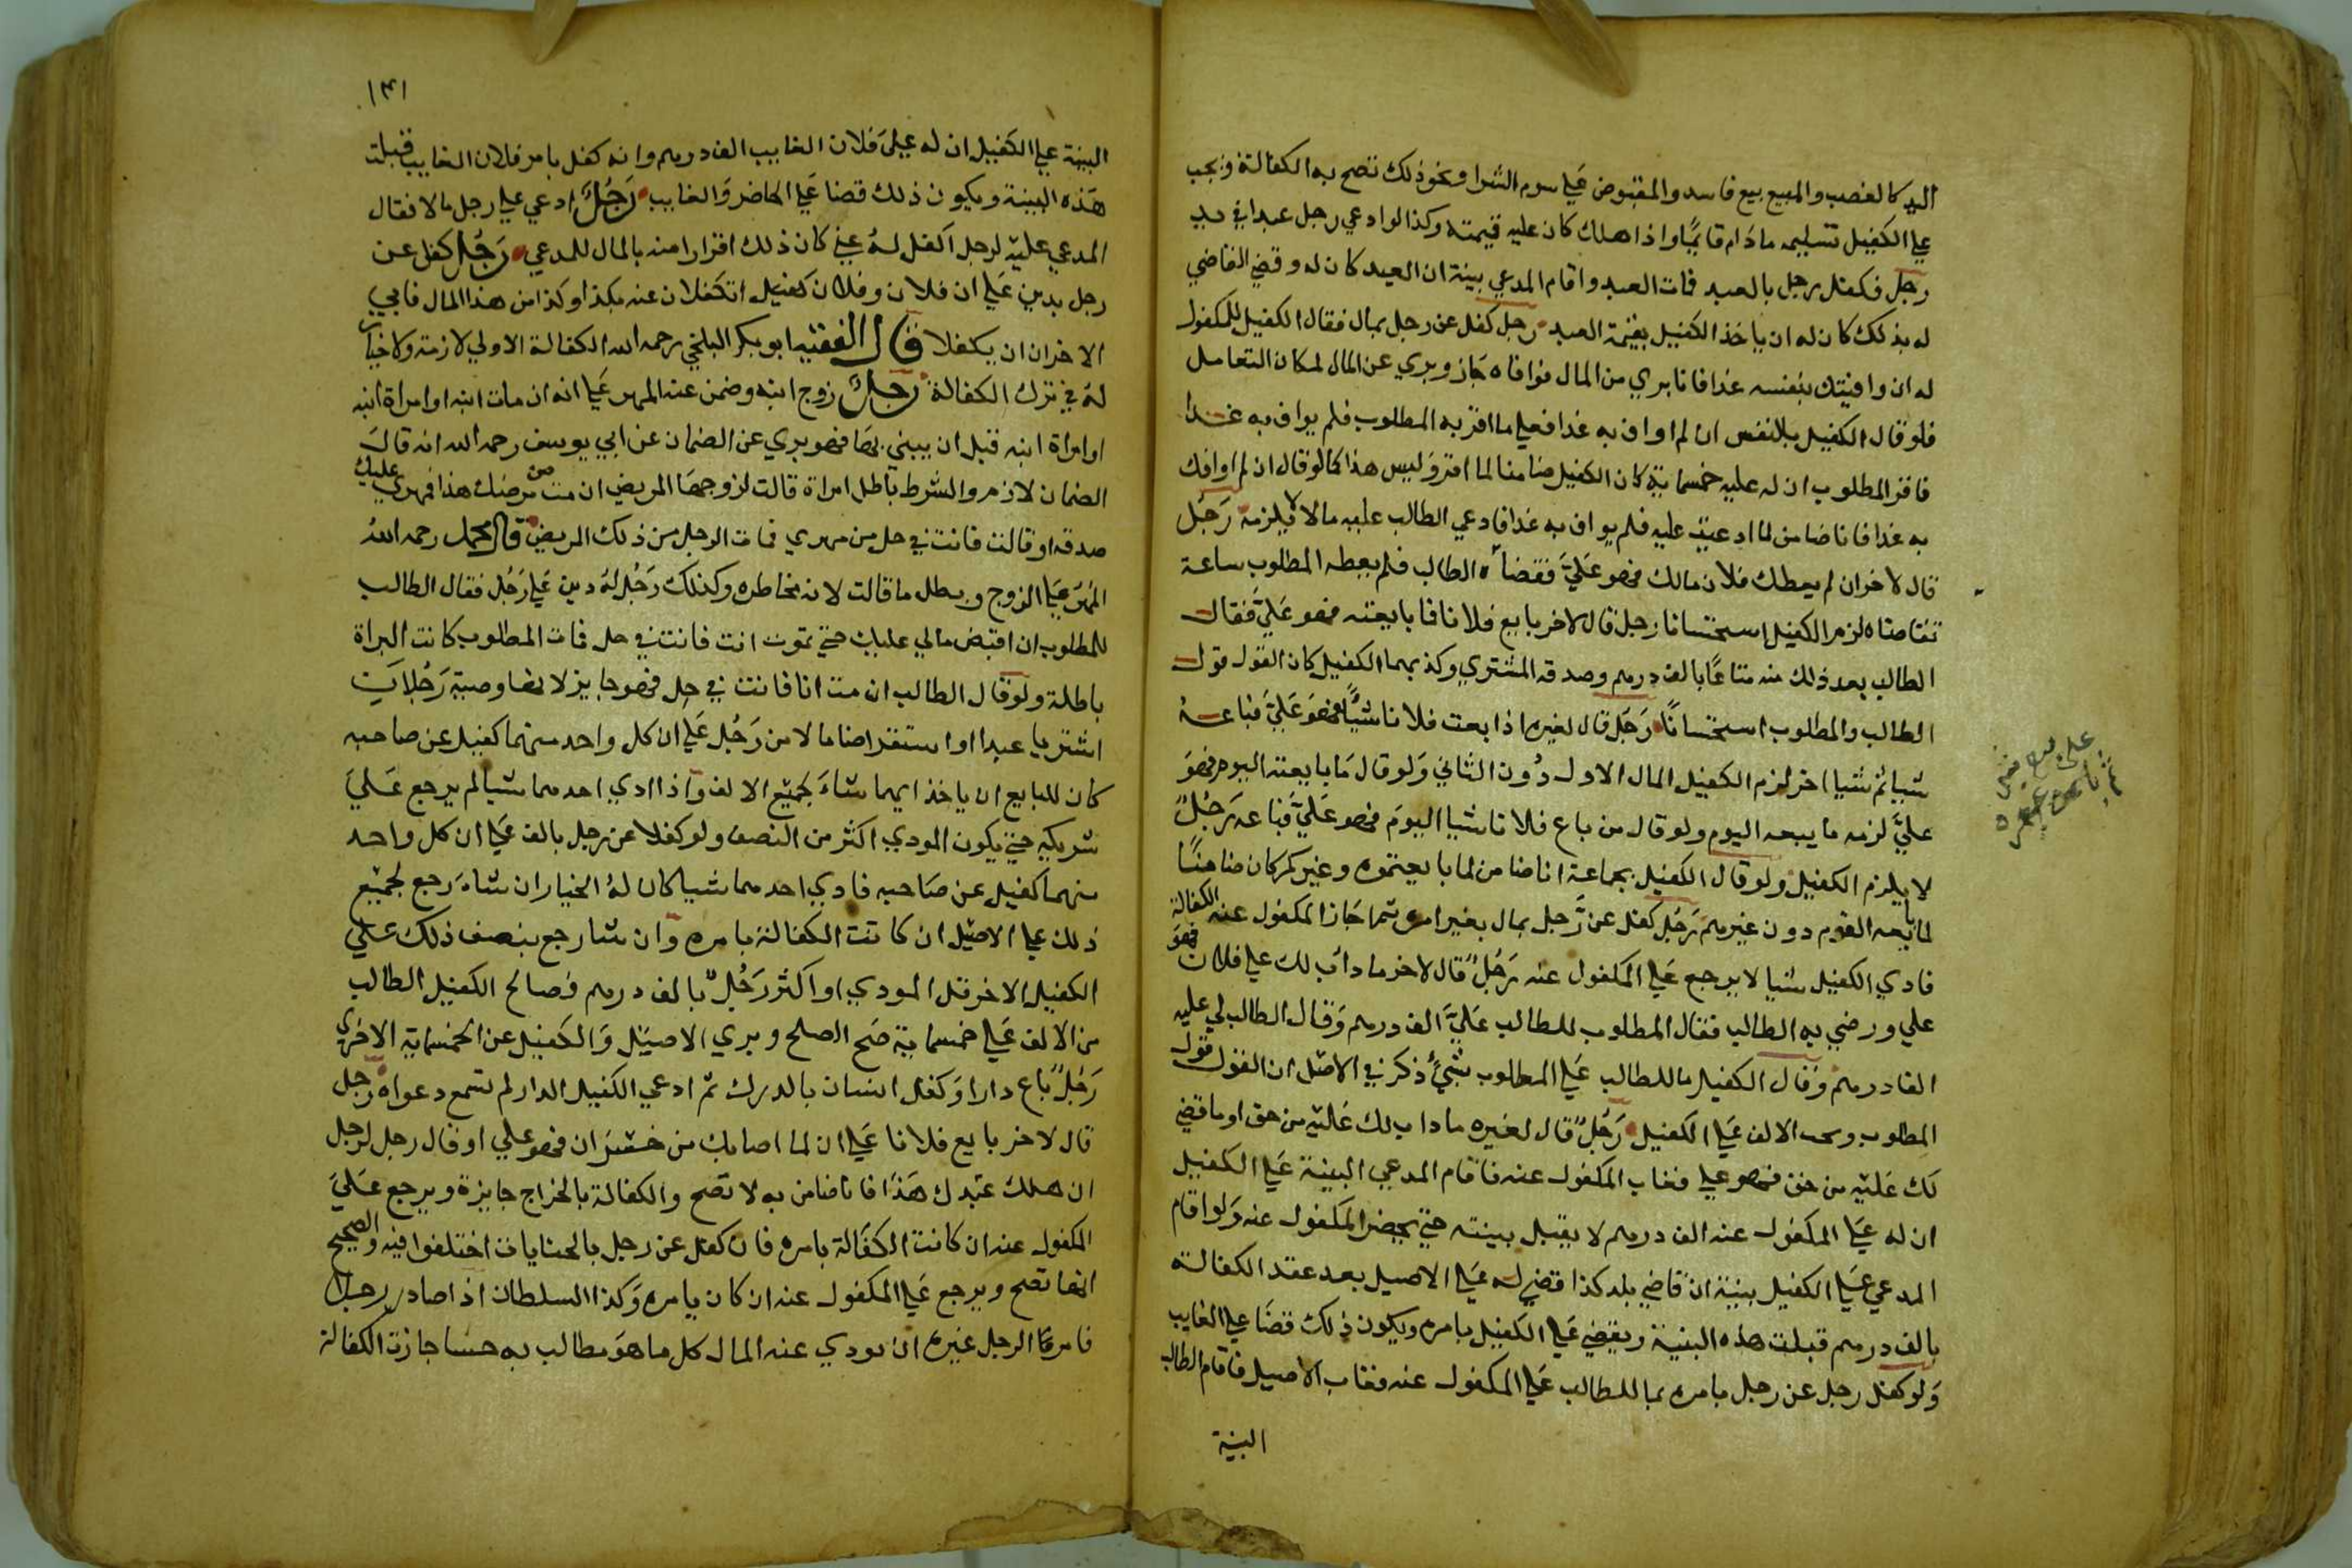 اليد كالغصب والمبيع بيع فاسد والمقبوض علي سوم الشرا ونحو ذلك تصح به الكفالة ويجب
علي الكفيل تسليمه مادام قايمًا واذا هلك كان عليه قيمته وكذا لوادعي رجل عبدا في يد
رجل فكفل رجل بالعبد فمات العبد واقام المدعي بينة ان العبد كان له وقضي القاضي
له بذلك كان له ان ياخذ الكفيل بقيمة العبد رجل كفل عن رجل بمال فقال الكفيل للمكفول
له ان وافيتك بنفسه غدا فانا بري من المال فوافاه جاز وبري عن المال لمكان التعامل
فلو قال الكفيل بالنفس ان لم اواف به غدا فعلي ما اقر به المطلوب فلم يواف به غدا
فاقر المطلوب ان له عليه خمسماية كان الكفيل ضامنا لما اقر وليس هذا كما لو قال ان لم اوافك
به غدا فانا ضامن لما ادعيت عليه فلم يواف به غدا فادعي الطالب عليه مالا لا يلزمه رَجُل
قال لاخر ان لم يعطك فلان مالك فهو عَلَيَّ فتقضاه الطالب فلم يعطه المطلوب ساعة
تقاضاه لزم الكفيل استحسانا رجل قال لاخر بايع فلانا فما بايعته فهو عَلَيَّ فقال
الطالب بعد ذلك منه متاعًا بالف درهم وصدقه المشتري وكذبهما الكفيل كان القول قول
الطالب والمطلوب استحسانًا رَجل قال لغيره اذا بعت فلانا شيًا فهو عَلَيَّ فباعه
شيا ثم شيا اخر لزم الكفيل المال الاول دُون الثاني وَلو قال مَا بايعته اليوم فهوَ
عليَّ لزمه ما يبيعه اليوم ولو قال من باع فلانا شيا اليومَ فهو عَلَيَّ فباعه رَجُلٌ
لا يلزم الكفيل ولو قال الكفيل بجماعة انا ضامن لما بايعتموه وغيركم كان ضامنًا
لما بايعه القوم دون غيرهم رَجُل كفل عن رَّجل بمال بغير امره ثم اجَاز المكفول عنه الكفالة
فادي الكفيل شيا لا يرجع عَلي المكفول عنه رَجُلٌ قال لاخر ما داب لك علي فلان فهوَ
علي ورضي به الطالب فقال المطلوب للطالب عَلَيَّ الف درهم وَقال الطالب لي عليه
الفا درهم وَقال الكفيل ما للطالب عَلي المطلوب شيٌ ذكر في الاصل ان القول قول
المطلوب ويجب الالف عَلي الكفيل رَجُلٌ قال لغيره ما داب لك عَليه من حق او ما قضي
لك عَليه من حق فهو علي فغاب المكفول عنه فاقام المدعي البينة عَلي الكفيل
ان له عَلي المكفول عنه الف درهم لا يقبل بينته حتي يحضر المكفول عنه وَلو اقام
المدعي عَلي الكفيل بينة ان قاضي بلد كذا قضي له عَلي الاصيل بعد عقد الكفالة
بالف درهم قبلت هذه البينة ويقضي عَلي الكفيل بامره ويكون ذلك قضَا علي الغايب
وَلو كفل رجل عن رجل بامره بما للطالب عَلي المكفول عنه وغاب الاصيل فاقام الطالب
البينة
١٣١
البينة علي الكفيل ان له عَلى فلان الغايب الف درهم وانه كفل بامر فلان الغايب قبلت
هَذه البينة ويكون ذلك قضا عَلي الحاضر وَالغايب رَجُلٌ ادعي علي رجل مالا فقال
المدعي عليه لرجل اكفل لهُ عني كان ذلك اقرارا منه بالمال للمدعي رَجُل كفل عن
رجل بدين عَلي ان فلان وفلان كفيل اتكفلان عنه بكذا وكذا من هذا المال فابي
الاخران ان يكفلا قال الفقيه ابو بكر البلخي رحمه الله الكفالة الاولي لازمة ولا خيار
لهُ في ترك الكفالة رجلٌ زوج ابنه وضمن عنه المهر عَلي انه ان مات ابنه او امراة ابنه
او امراة ابنه قبل ان يبني بهَا فهو بري عن الضمان عن ابي يوسف رحمه الله انه قال
الضمان لازم والشرط باطل امراة قالت لزوجهَا المريض ان مت من مرضك هذا فمهري عليك
صدقة او قالت فانت في حل من مهري فمات الرجل من ذلك المريض قال محمد رحمه اللهُ
المهر عَلي الزوج وبطل ما قالت لانه مخاطره وكذلك رَجُل لهُ دين عَلي رَجُل فقال الطالب
للمطلوب ان اقبض مالي عليك حتي تموت انت فانت في حل فمات المطلوب كانت البراة
باطلة ولو قال الطالب ان مت انا فانت في حل فهو جايز لانها وصية رَجُلاَن
اشتريا عبدا او استقرضا مالا من رَجُل عَلي ان كل واحد منهما كفيل عن صاحبه
كان للبايع ان ياخذ ايهما شاءَ بجميع الالف واذا ادي احدهما شيا لم يرجع عَليَ
شريكه حتي يكون المودي اكثر من النصف ولو كفلا عن رجل بالف عَلي ان كل واحد
منهما كفيل عن صَاحبه فادي احدهما شيا كان لهُ الخيار ان شاءَ رجع بجميع
ذلك علي الاصيل ان كانت الكفالة بامره وَان شا رجع بنصف ذلك علي
الكفيل الاخر قل المودي او اكثر رَجُلٌ بالف درهم فصالح الكفيل الطالب
من الالف عَلي خمسماية صَح الصلح وبري الاصيل وَالكفيل عن الخمسماية الاخري
رَجُلٌ باع دارا وَكفل انسان بالدرك ثم ادعي الكفيل الدار لم تسمع دعواه رجل
قال لاخر بايع فلانا عَلي ان لما اصابك من خسران فهو علي او قال رجل لرجل
ان هلك عبدك هَذا فانا ضامن به لا تصح والكفالة بالخراج جايزة ويرجع عَليَ
المكفول عنه ان كانت الكفَالة بامره فان كفل عن رجل بالجنايات اختلفوا فيه والصحيح
انها تصح ويرجع عَلي المكفول عنه ان كان بامره وَكذا السلطان اذا صادر رجل
فامرهَا الرجل غيره ان يودي عنه المال كل ما هوَ مطالب به حسا جازت الكفالة